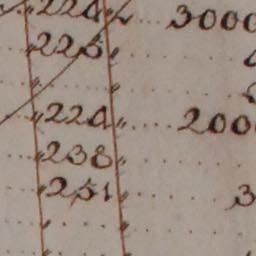 224 3000
225
224 200
238
231 3